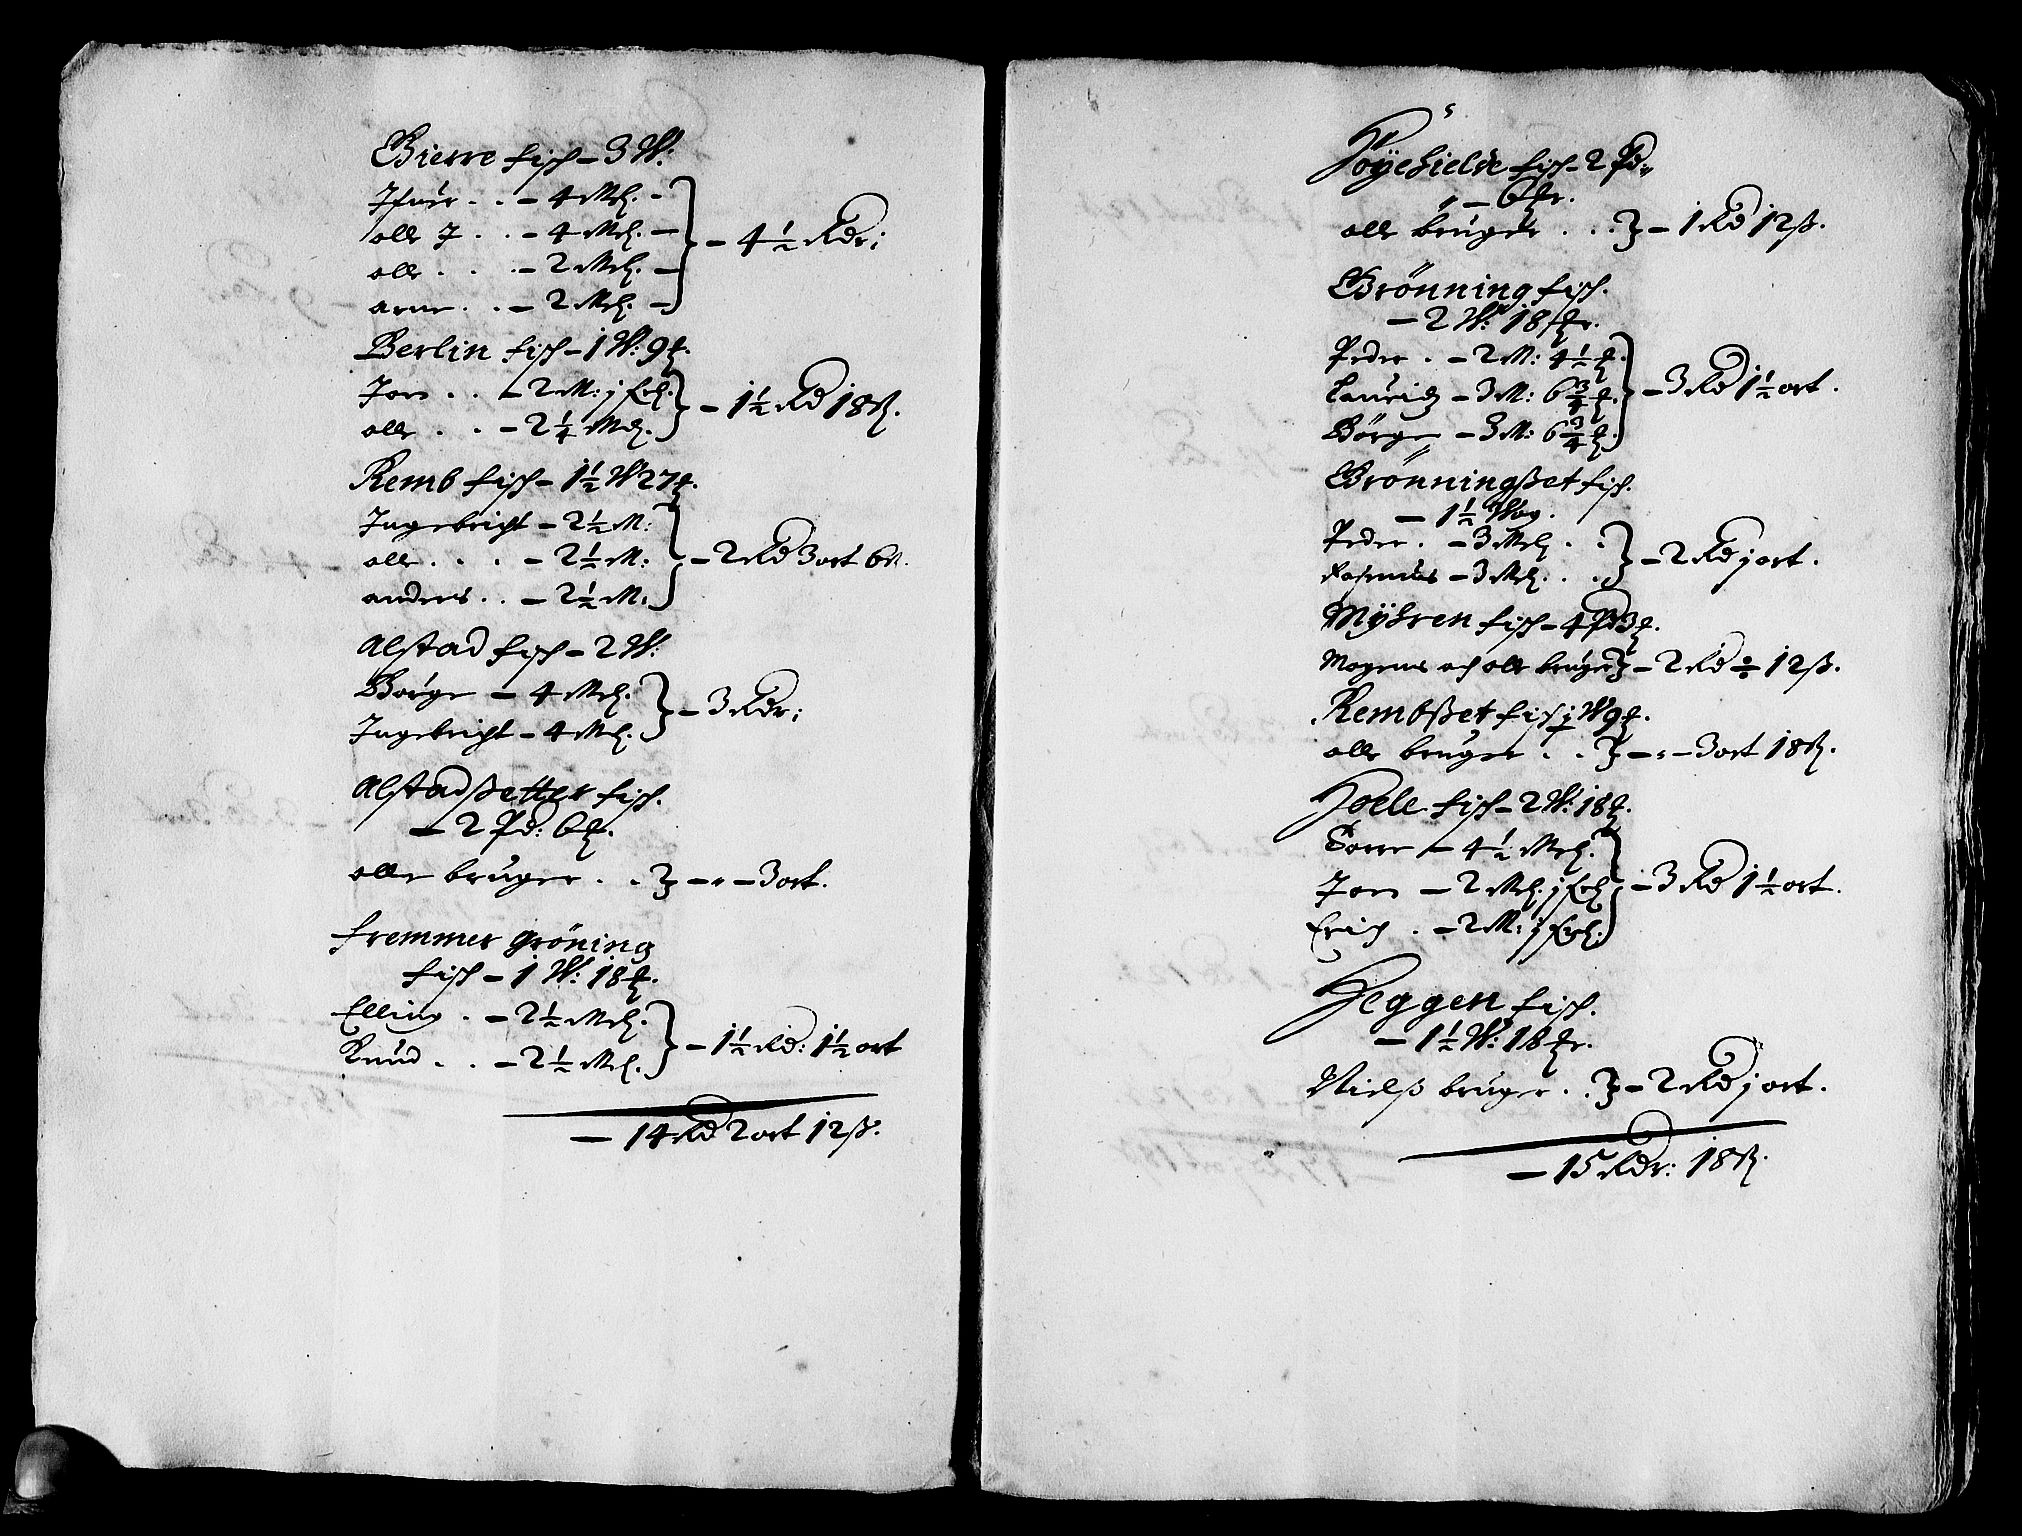 Bierre fisch – 3 W:
Ifuer . . – 4 Mel. –
olle J . . – 4 Mel. –
olle . . . – 2 Mel. –
arne . . – 2 Mel. – } – 4½ Rdr;
Berlin fisch – 1 W: 9 ₰.
Jon . . – 2 M: j fch.
olle . . – 2¼ Mel. } – 1½ Rd 18 ß.
Remb fisch – 1½ W 27 ₰.
Ingebricht – 2½ M:
olle . . . – 2½ M:
anders . . – 2½ M: } – 2 Rd 3 ort 6 ß.
Alstad fisch – 2 W:
Borge – 4 Mel.
Ingebricht – 4 Mel. } – 3 Rdr;
Alstadßetter fisch.
– 2 Pd: 6 ₰.
olle bruger . . } – „ – 3 ort.
fremmer gröning
fisch – 1 W: 18 ₰.
Elling . – 2½ Mel.
Knud . . – 2½ Mel. } – 1½ Rd: 1½ ort
– 14 Rd 2 ort 12 ß.
Höyehielde fisch – 2 Pd
„ – 6 ₰r.
olle bruger . . . } – 1 Rd 12 ß.
Brönning fisch.
– 2 W: 18 ₰r.
Peder . – 2 M: 4½ ₰.
Lauridz – 3 M: 6¾ ₰.
Börge – 3 M: 6¾ ₰. } – 3 Rd 1½ ort.
Brönningßet fisch.
– 1½ Wog.
Peder . – 3 Mel. . .
Rasmus – 3 Mel. . . } – 2 Rd j ort.
Myhren fisch – 4 Pd 3 ₰.
Mogens och olle bruger } – 2 Rd ÷ 12 ß.
Rembßet fisch j W 9 ₰.
olle bruger . . } – „ – 3 ort 18 ß.
Hoele fisch – 2 W: 18 ₰.
Torre – 4½ Mel.
Jon – 2 Mel. j fch.
Erich . – 2 M: j fch. } – 3 Rd 1½ ort.
Heggen fisch.
– 1½ W: 18 ₰r.
Nielß bruger . . } – 2 Rd j ort.
– 15 Rdr: 18 ß.